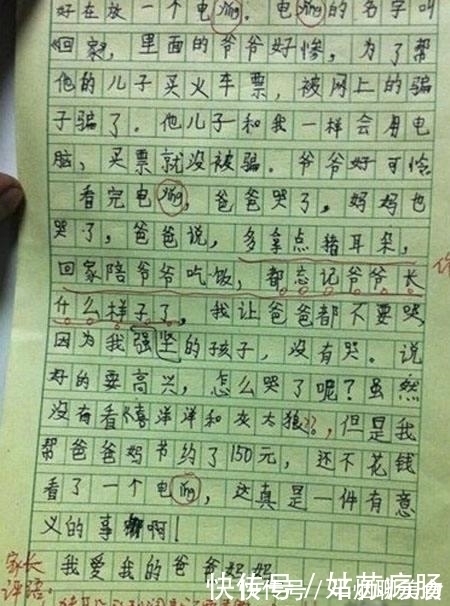 好在放一个电ying。电ying的名字叫
回家，里面的爷爷好惨，为了帮
他的儿子买火车票，被网上的骗
子骗了。他儿子和我一样会用电
脑，买票就没被骗。爷爷好可怜
看完电ying，爸爸哭了，妈妈也
哭了，爸爸说，多拿点猪耳朵，
回家陪爷爷吃饭，都忘记爷爷长
什么样子了，我让爸爸都不要哭，
因为我强坚的孩子，没有哭。说
好的要高兴，怎么哭了呢？虽然
没有看喜洋洋和灰太狼，但是我
帮爸爸妈节约了150元，还不花钱
看了一个电ying，这真是一件有意
义的事啊！
家长 我爱我的爸爸妈妈
评语：
快传号／